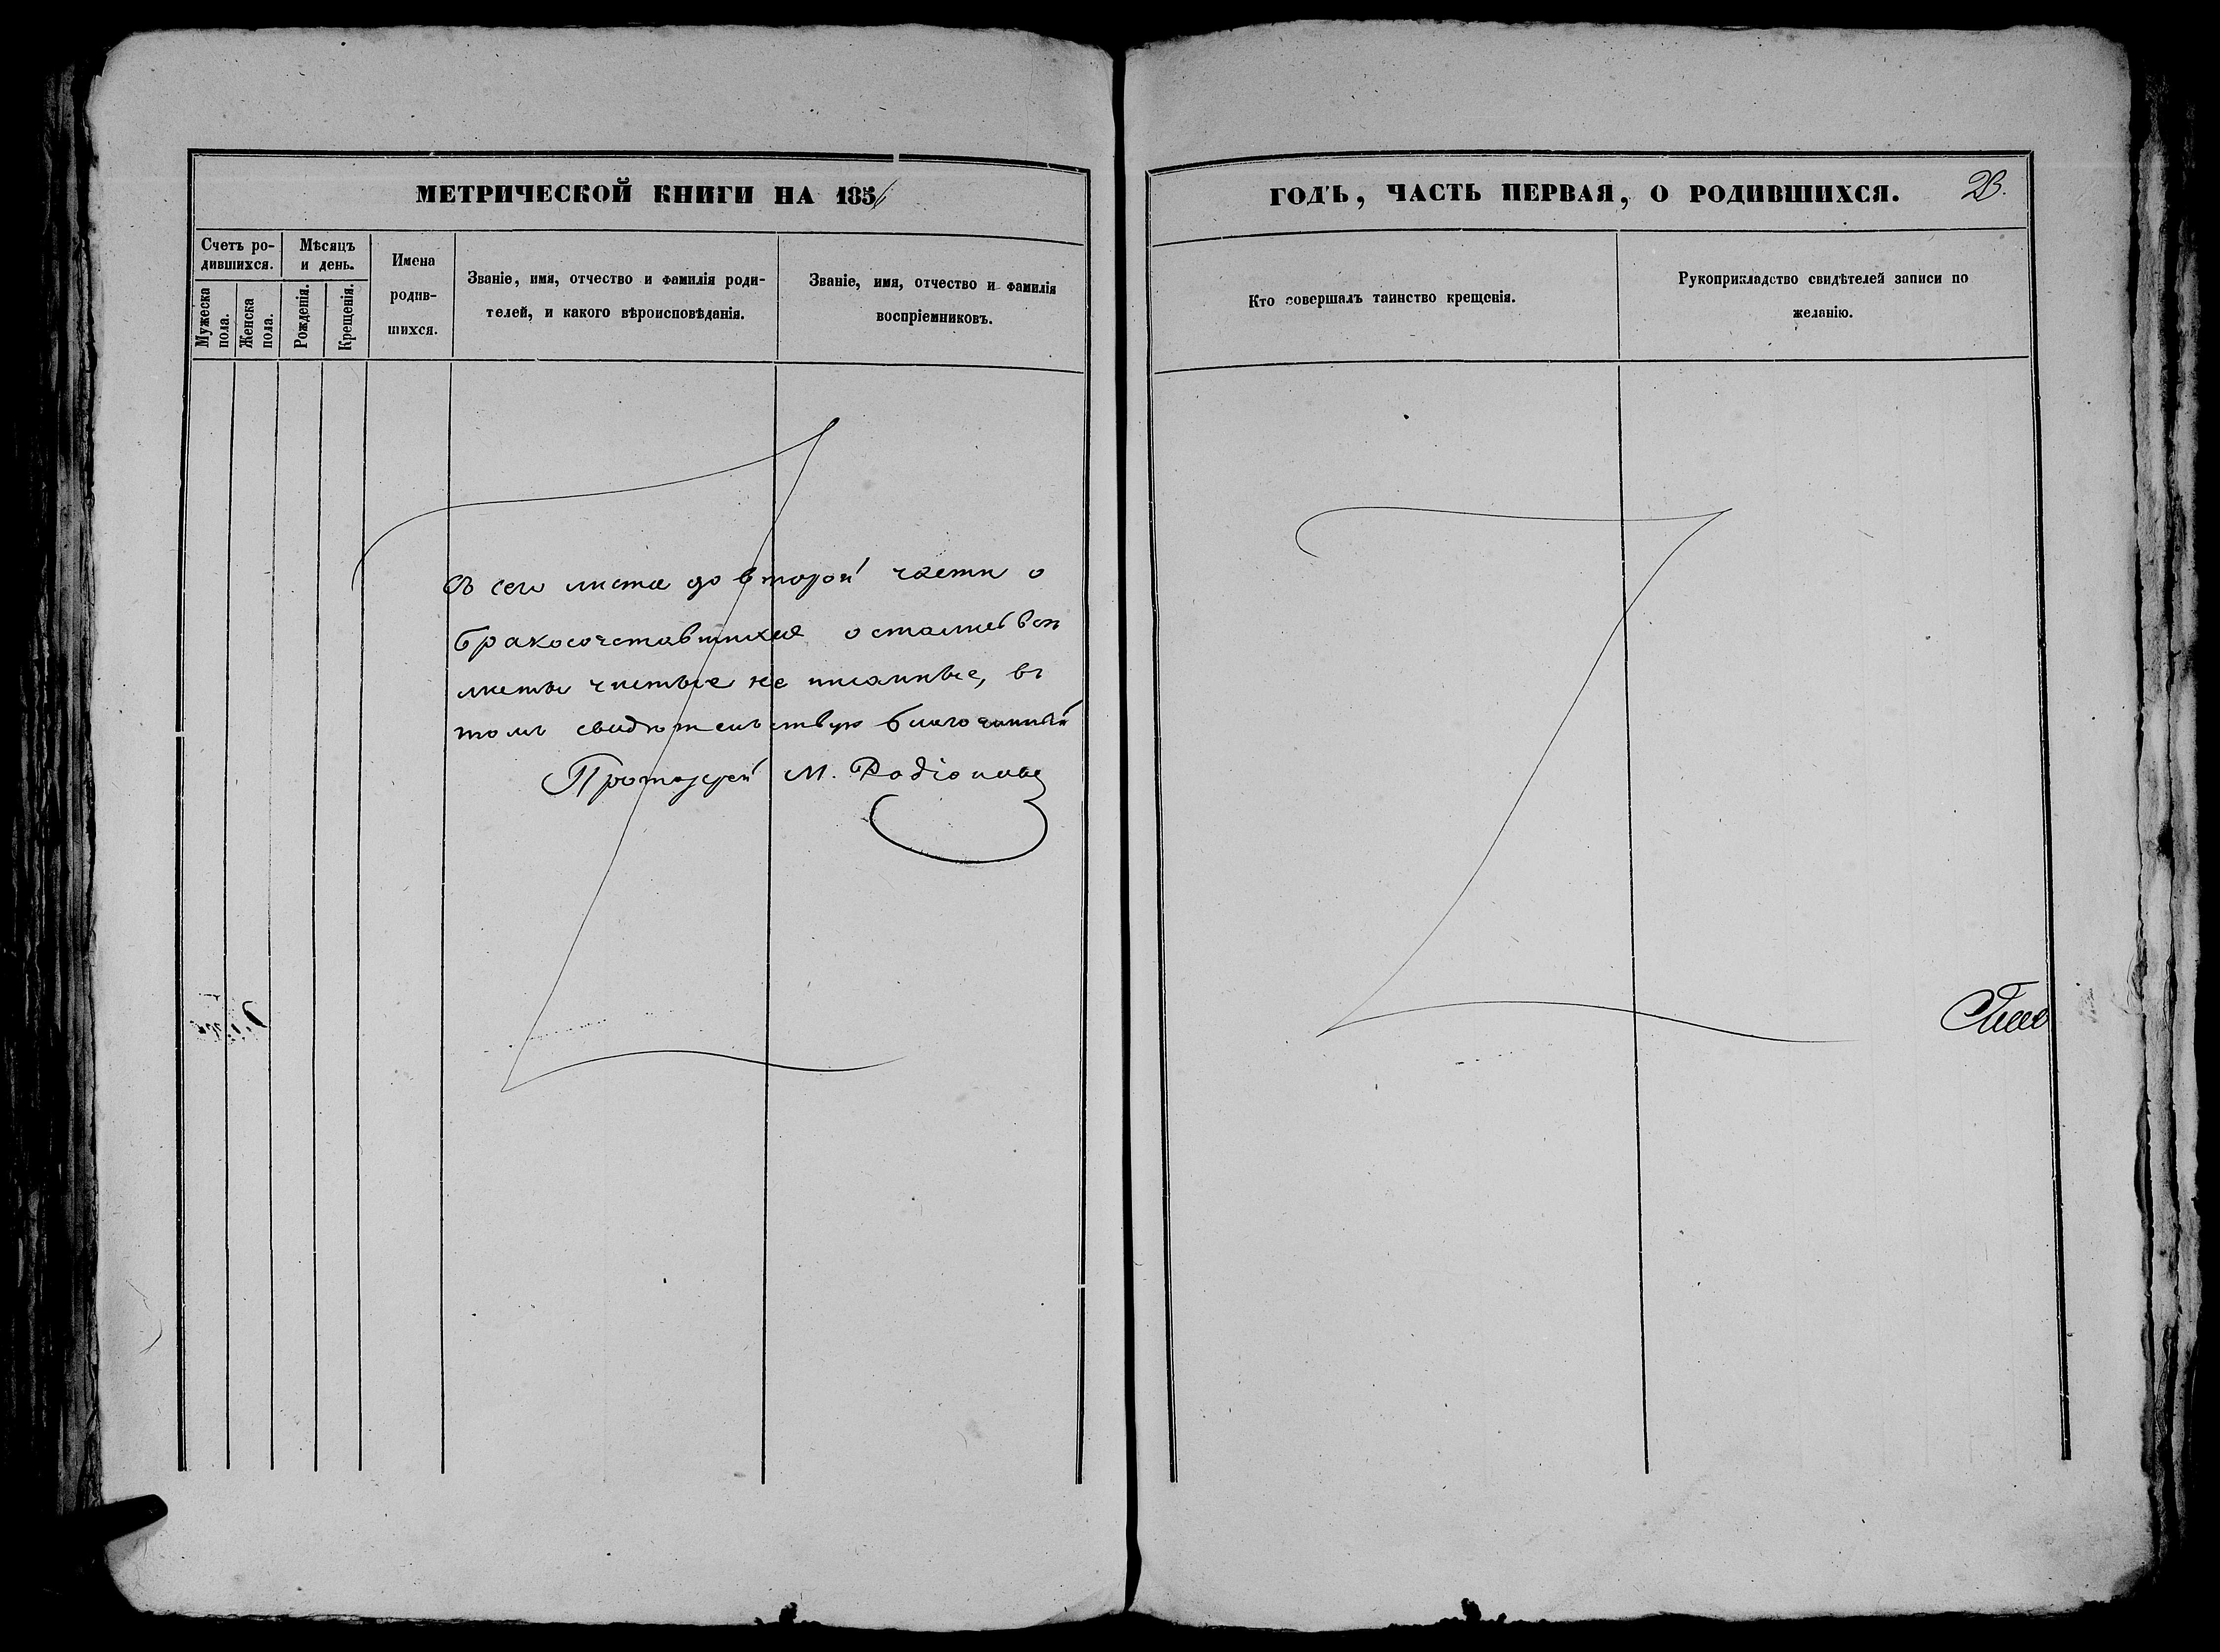 МЕТРИЧЕСКОЙ КНИГИ НА 185
Счетъ ро-
дившихся.
Мужеска
пола.
Женска
пола.
Мѣсяцъ
и день.
Рожденія.
Крещенія.
Имена
родив-
шихся.
Званіе, имя, отчество и фамилія роди-
телей, и какого вѣроисповѣданія.
Званіе, имя, отчество и фамилія
воспріемниковъ.
Съ сего листа до второй части о
бракосочетавшихся
листы чистые не писанные, въ
томъ свидѣтельствую благочинный
Протоіерей М. Родіоновъ
ГОДЪ, ЧАСТЬ ПЕРВАЯ, О РОДИВШИХСЯ.
23.
Кто совершалъ таинство крещенія.
Рукоприкладство свидѣтелей записи по
желанію.